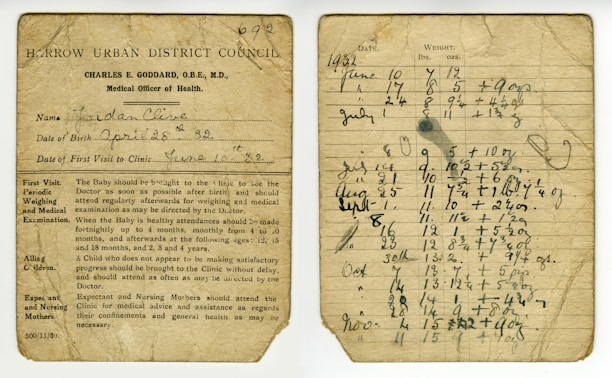 692
HARROW URBAN DISTRICT COUNCIL
CHARLES E. GODDARD, O.B.E., M.D.,
Medical Officer of Health.
Name Jordan Clive
Date of Birth April 28th 32
Date of First Visit to Clinic June 10th 32
First Visit. The Baby should be brought to the Clinic to see the
Periodic Doctor as soon as possible after birth and should
Weighing attend regularly afterwards for weighing and medical
and Medical examination as may be directed by the Doctor.
Examination. When the Baby is healthy attendances should be made
fortnightly up to 4 months, monthly from 4 to
months, and afterwards at the following ages: 12, 15
and 18 months, and 2, 3 and 4 years.
Ailing A Child who does not appear to be making satisfactory
Children. progress should be brought to the Clinic without delay,
and should attend as often as may be directed by the
Doctor.
Expectant Expectant and Nursing Mothers should attend the
and Nursing Clinic for medical advice and assistance as regards
Mothers. their confinements and general health as may be
necessary.
DATE. WEIGHT.
lbs. ozs.
1932
June 10 7 12
" 17 8 5 + 9 ozs.
" 24 8 9¼ + 4¼
July 1 8 11 +
" 8 9 5 + 10 oz
14 9 10½ + 5½
21 10
Aug 25 11 7¾ +
Sept 1. 11. 10 + 2¼ oz.
8 11. 11½ + 1
16 12 1 + 5½ oz
23 12 8¾ +
30th 13. 2.
Oct 7 13 7 + 5
" 14 13. 12¼ + 5
14 1 +
28 14 9 + 8 oz.
Nov. 4 15 2 + 9 oz.
" 11 15 9